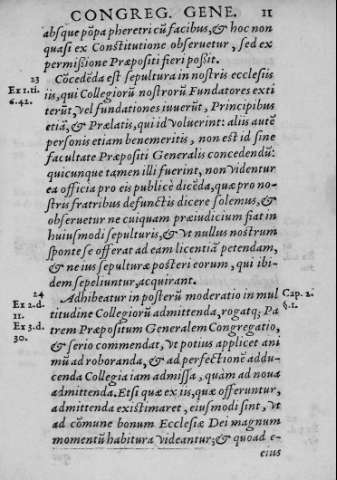 CONGREG. GENE. 11
absque põpa pheretri cũ facibus, & hoc non
quasi ex Constitutione obseruetur, sed ex
permißione Præpositi fieri poßit.
23
Cõcedẽda est sepultura in nostris ecclesiis
Ex 1. ti.
6. 42.
iis, qui Collegiorũ nostrorũ Fundatores exti
terũt, vel fundationes iuuerũt, Principibus
etiã, & Prælatis, qui id voluerint: aliis autẽ
personis etiam benemeritis, non est id sine
facultate Præpositi Generalis concedendũ:
quicunque tamen illi fuerint, non videntur
ea officia pro eis publicè dicẽda, quæ pro no-
stris fratribus defunctis dicere solemus, &
obseruetur ne cuiquam præiudicium fiat in
huiusmodi sepulturis, & vt nullus nostrum
sponte se offerat ad eam licentiã petendam,
& ne ius sepulturæ posteri eorum, qui ibi-
dem sepeliuntur, acquirant.
24
Adhibeatur in posterũ moderatio in mul
Cap. 2.
§. 1.
Ex 2. d.
11.
titudine Collegiorũ admittenda, rogatq; Pa
Ex 3. d.
30.
trem Præpositum Generalem Congregatio,
& serio commendat, vt potius applicet ani
mũ ad roboranda, & ad perfectionẽ addu-
cenda Collegia iam admissa, quàm ad noua
admittenda. Etsi quæ ex iis, quæ offeruntur,
admittenda existimaret, eiusmodi sint, vt
ad cõmune bonum Ecclesiæ Dei magnum
momentũ habitura videantur; & quoad e-
eius